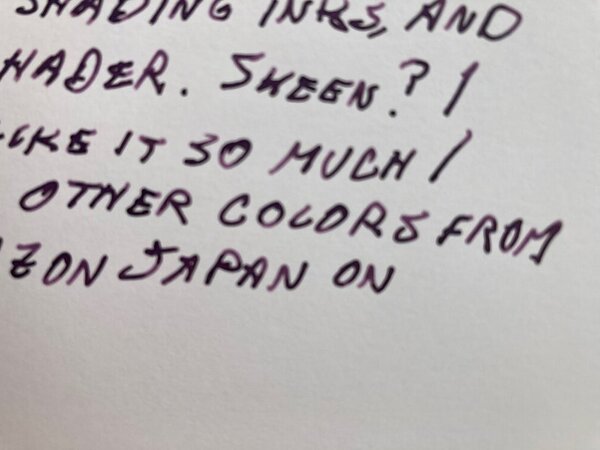 SHADING INKS, AND
HADER. SKEEN? I
LIKE IT SO MUCH I
OTHER COLORS FROM
ZON JAPAN ON